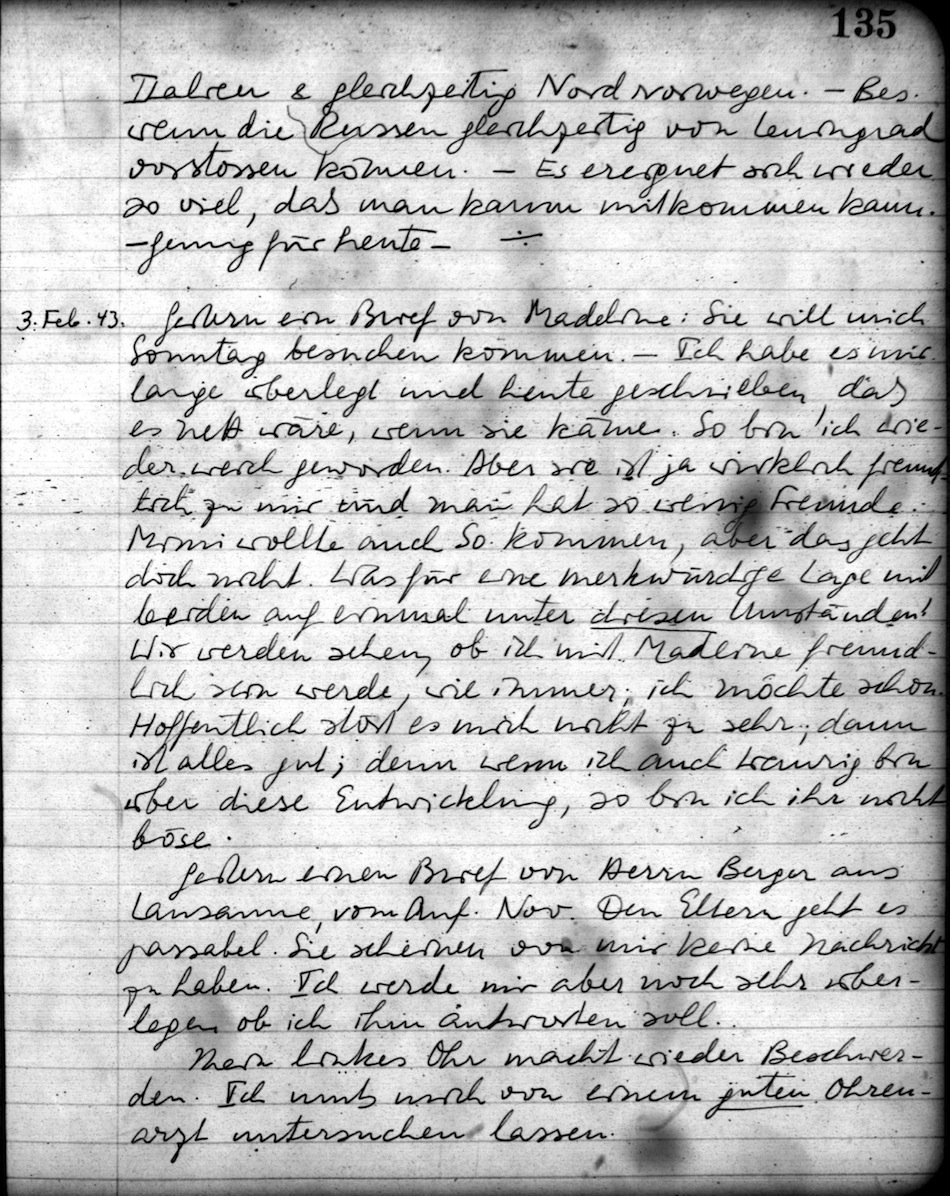 135
Italien & gleichzeitig Nordnorwegen. – Bes.
wenn die Russen gleichzeitig von Leningrad
vorstossen können. – Es ereignet sich wieder
so viel, daß man kaum mitkommen kann.
– Genug für heute – ÷
3. Feb. 43. Gestern ein Brief von Madeleine: Sie will mich
Sonntag besuchen kommen. – Ich habe es mir
lange überlegt und heute geschrieben, daß
es nett wäre, wenn sie käme. So bin ich wie-
der weich geworden. Aber sie ist ja wirklich freund-
lich zu mir und man hat so wenig Freunde.
Mimi wollte auch So. kommen, aber das geht
doch nicht. Was für eine merkwürdige Lage mit
beiden auf einmal unter diesen Umständen!
Wir werden sehen, ob ich mit Madeleine freund-
lich sein werde, wie immer; ich möchte schon.
Hoffentlich stört es mich nicht zu sehr; dann
ist alles gut; denn wenn ich auch traurig bin
über diese Entwicklung, so bin ich ihr nicht
böse.
Gestern einen Brief von Herrn Berger aus
Lausanne, vom Anf. Nov. Den Eltern geht es
passabel. Sie scheinen von mir keine Nachricht
zu haben. Ich werde mir aber noch sehr über-
legen, ob ich ihm antworten soll.
Mein linkes Ohr macht wieder Beschwer-
den. Ich muß mich von einem guten Ohren-
arzt untersuchen lassen.